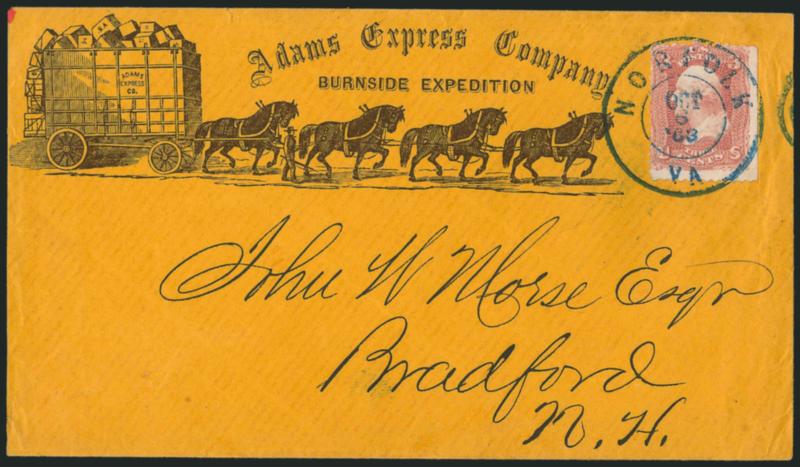 Adams Express Company
BURNSIDE EXPEDITION
ADAMS
EXPRESS
CO.
NORFOLK
OCT
6
'63
VA
John W Morse Esqr
Bradford
N. H.